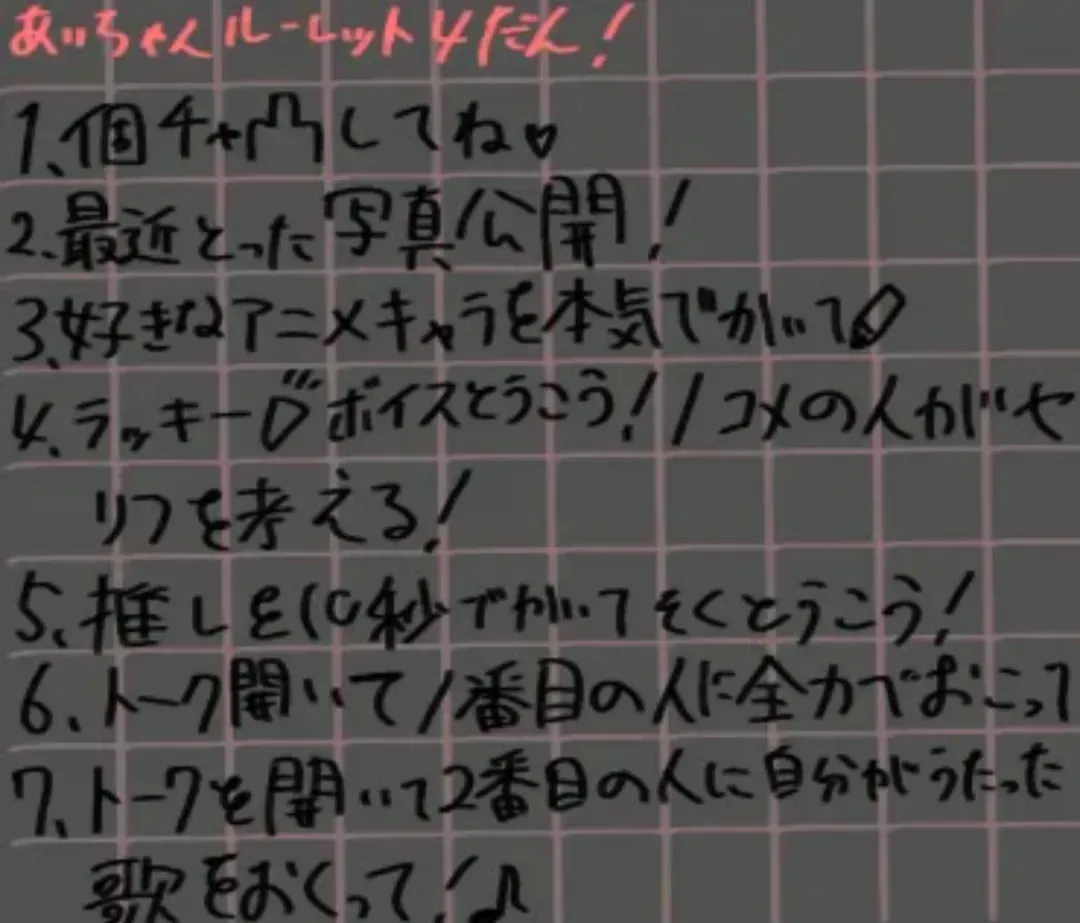 あいちゃんルーレット4だん!
1、個チャ凸してね♡
2、最近とった写真公開!
3、好きなアニメキャラを本気でかいて
4、ラッキー ボイスとうこう!1コメの人がセ
リフを考える!
5、推しを10秒でかいてそくとうこう!
6、トーク開いて1番目の人に全力でおこって
7、トークを開いて2番目の人に自分がうたった
歌をおくって!♪